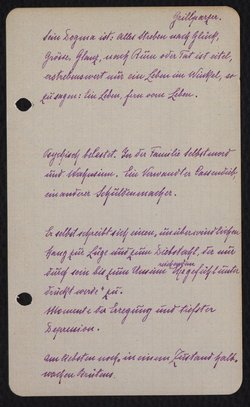 Grillparzer.
Sein Dogma ist: Alles Streben nach Glück,
Grösse, Glanz, nach Rum oder Tat ist eitel,
erstrebenswert nur ein Leben im Winkel, so-
zusagen: Ein Leben, fern vom Leben.
Psychisch belastet. In der Familie Selbstmord
und Wahnsinn. Ein Verwandter Kassendieb
ein anderer Schuldenmacher.
Er selbst schreibt sich einen, unüberwindlichen
Hang zur Lüge und zum Diebstahl, der nur
durch sein bis zum Unsinn reichendes Ehrgefühl unter-
drückt werde" zu.
Momente der Erregung und tiefster
Depression.
Am liebsten noch, in einem Zustand halb-
wachen Brütens.